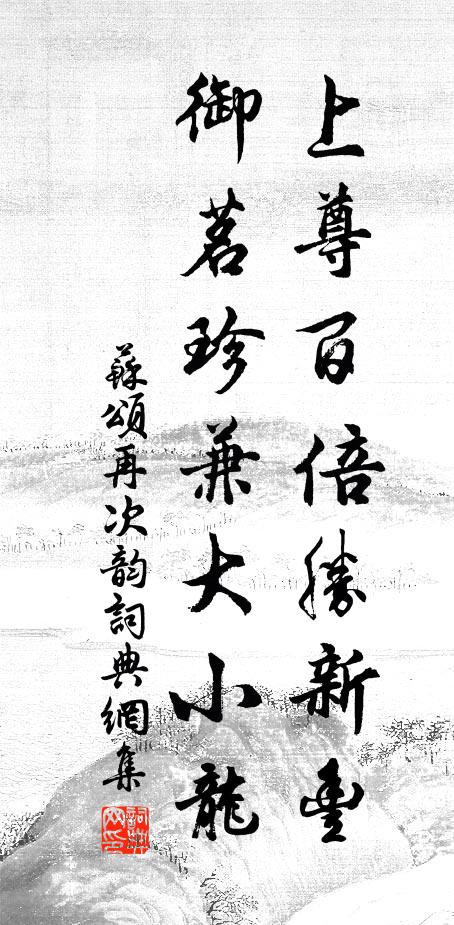 上尊百倍勝新豐
御茗珍兼大小龍
蘇頌再次韵詞典網集